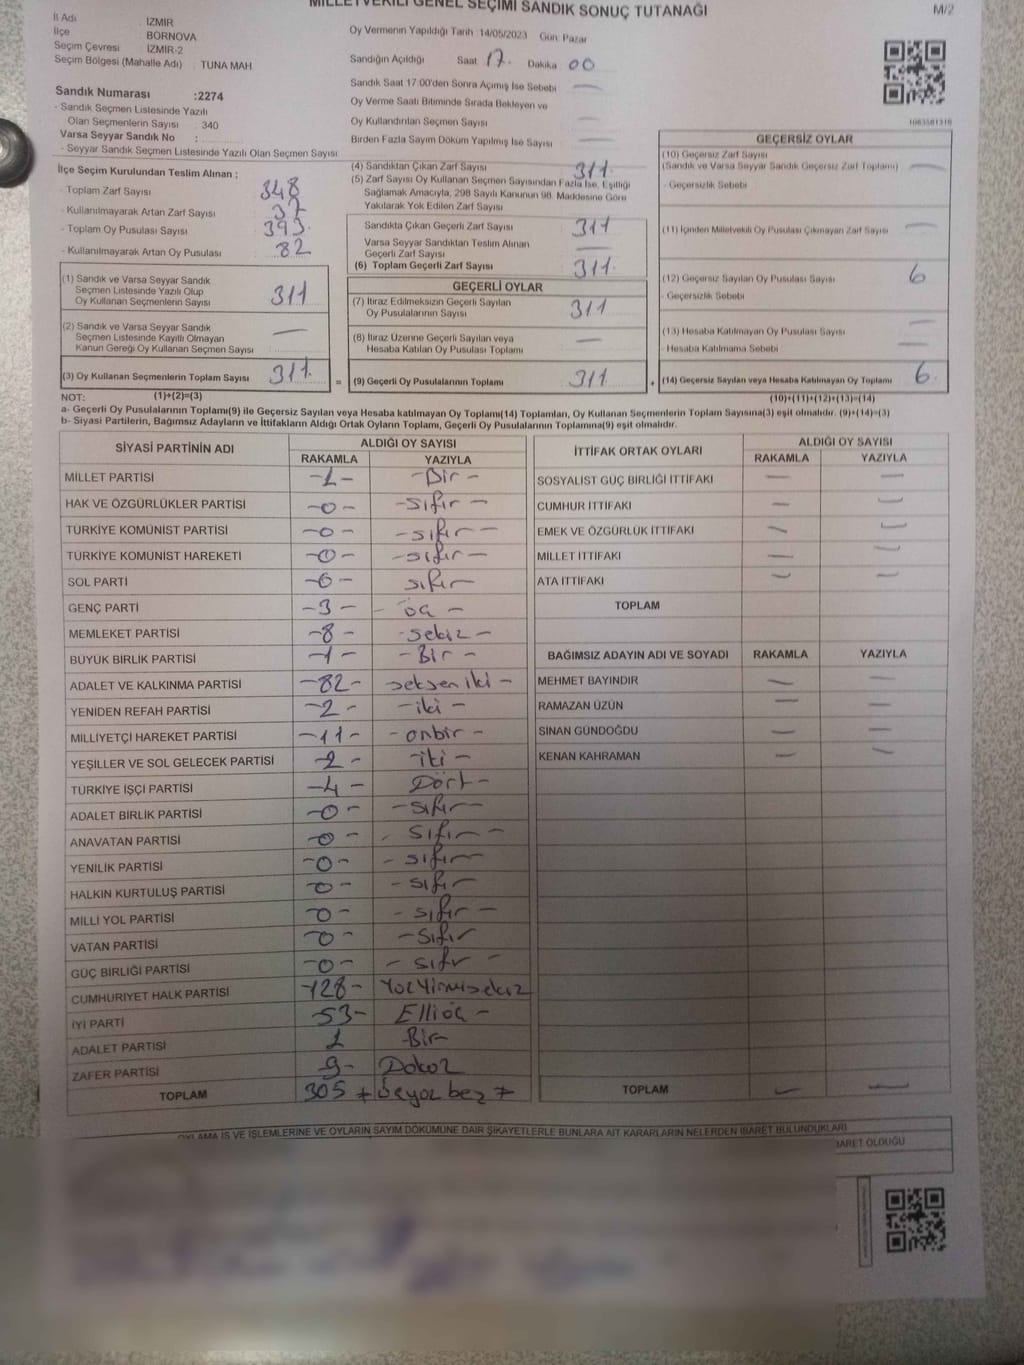 MİLLETVEKİLİ GENEL SEÇİMİ SANDIK SONUÇ TUTANAĞI
M/2
İl Adı İZMİR
İlçe BORNOVA
Seçim Çevresi İZMİR-2
Seçim Bölgesi (Mahalle Adı) TUNA MAH
Sandık Numarası :2274
- Sandık Seçmen Listesinde Yazılı
Olan Seçmenlerin Sayısı : 340
Varsa Seyyar Sandık No :
- Seyyar Sandık Seçmen Listesinde Yazılı Olan Seçmen Sayısı
İlçe Seçim Kurulundan Teslim Alınan ;
- Toplam Zarf Sayısı 348
- Kullanılmayarak Artan Zarf Sayısı 37
- Toplam Oy Pusulası Sayısı 393
- Kullanılmayarak Artan Oy Pusulası 82
(1) Sandık ve Varsa Seyyar Sandık
Seçmen Listesinde Yazılı Olup
Oy Kullanan Seçmenlerin Sayısı 311
(2) Sandık ve Varsa Seyyar Sandık —
Seçmen Listesinde Kayıtlı Olmayan
Kanun Gereği Oy Kullanan Seçmen Sayısı
(3) Oy Kullanan Seçmenlerin Toplam Sayısı 311.
Oy Vermenin Yapıldığı Tarih 14/05/2023 Gün Pazar
Sandığın Açıldığı Saat 17. Dakika 00
Sandık Saat 17:00'den Sonra Açılmış İse Sebebi —
Oy Verme Saati Bitiminde Sırada Bekleyen ve
Oy Kullandırılan Seçmen Sayısı —
Birden Fazla Sayım Döküm Yapılmış İse Sayısı —
(4) Sandıktan Çıkan Zarf Sayısı 311.
(5) Zarf Sayısı Oy Kullanan Seçmen Sayısından Fazla İse, Eşitliği
Sağlamak Amacıyla, 298 Sayılı Kanunun 98. Maddesine Göre
Yakılarak Yok Edilen Zarf Sayısı
Sandıkta Çıkan Geçerli Zarf Sayısı 311
Varsa Seyyar Sandıktan Teslim Alınan
Geçerli Zarf Sayısı —
(6) Toplam Geçerli Zarf Sayısı 311.
GEÇERLİ OYLAR
(7) İtiraz Edilmeksizin Geçerli Sayılan
Oy Pusulalarının Sayısı 311
(8) İtiraz Üzerine Geçerli Sayılan veya
Hesaba Katılan Oy Pusulası Toplamı —
= (9) Geçerli Oy Pusulalarının Toplamı 311 +
1083581318
GEÇERSİZ OYLAR
(10) Geçersiz Zarf Sayısı
(Sandık ve Varsa Seyyar Sandık Geçersiz Zarf Toplamı) —
- Geçersizlik Sebebi
(11) İçinden Milletvekili Oy Pusulası Çıkmayan Zarf Sayısı —
(12) Geçersiz Sayılan Oy Pusulası Sayısı 6
- Geçersizlik Sebebi
(13) Hesaba Katılmayan Oy Pusulası Sayısı —
- Hesaba Katılmama Sebebi —
(14) Geçersiz Sayılan veya Hesaba Katılmayan Oy Toplamı 6.
NOT: (1)+(2)=(3) (10)+(11)+(12)+(13)=(14)
a- Geçerli Oy Pusulalarının Toplamı(9) ile Geçersiz Sayılan veya Hesaba katılmayan Oy Toplamı(14) Toplamları, Oy Kullanan Seçmenlerin Toplam Sayısına(3) eşit olmalıdır. (9)+(14)=(3)
b- Siyasi Partilerin, Bağımsız Adayların ve İttifakların Aldığı Ortak Oyların Toplamı, Geçerli Oy Pusulalarının Toplamına(9) eşit olmalıdır.
SİYASİ PARTİNİN ADI ALDIĞI OY SAYISI
RAKAMLA YAZIYLA
MİLLET PARTİSİ -1- -Bir-
HAK VE ÖZGÜRLÜKLER PARTİSİ -0- -sıfır-
TÜRKİYE KOMÜNİST PARTİSİ -0- -sıfır-
TÜRKİYE KOMÜNİST HAREKETİ -0- -sıfır-
SOL PARTİ -0- sıfır
GENÇ PARTİ -3- - üç -
MEMLEKET PARTİSİ -8- -sekiz-
BÜYÜK BİRLİK PARTİSİ -1- -Bir-
ADALET VE KALKINMA PARTİSİ -82- seksen iki -
YENİDEN REFAH PARTİSİ -2- -iki-
MİLLİYETÇİ HAREKET PARTİSİ -11- -onbir-
YEŞİLLER VE SOL GELECEK PARTİSİ -2- iki-
TÜRKİYE İŞÇİ PARTİSİ -4- Dört-
ADALET BİRLİK PARTİSİ -0- -sıfır-
ANAVATAN PARTİSİ -0- - sıfır-
YENİLİK PARTİSİ -0- - sıfır
HALKIN KURTULUŞ PARTİSİ -0- - sıfır
MİLLİ YOL PARTİSİ -0- - sıfır-
VATAN PARTİSİ -0- -sıfır
GÜÇ BİRLİĞİ PARTİSİ -0- - sıfır -
CUMHURİYET HALK PARTİSİ 128- Yüzyirmisekiz
İYİ PARTİ -53- Elliüç-
ADALET PARTİSİ 1 Bir
ZAFER PARTİSİ -9- Dokuz
TOPLAM 305
İTTİFAK ORTAK OYLARI ALDIĞI OY SAYISI
RAKAMLA YAZIYLA
SOSYALİST GÜÇ BİRLİĞİ İTTİFAKI — —
CUMHUR İTTİFAKI — —
EMEK VE ÖZGÜRLÜK İTTİFAKI — —
MİLLET İTTİFAKI — —
ATA İTTİFAKI — —
TOPLAM
BAĞIMSIZ ADAYIN ADI VE SOYADI RAKAMLA YAZIYLA
MEHMET BAYINDIR — —
RAMAZAN ÜZÜN — —
SİNAN GÜNDOĞDU — —
KENAN KAHRAMAN — —
TOPLAM — —
OYLAMA İŞ VE İŞLEMLERİNE VE OYLARIN SAYIM DÖKÜMÜNE DAİR ŞİKAYETLERLE BUNLARA AİT KARARLARIN NELERDEN İBARET BULUNDUKLARI
İBARET OLDUĞU